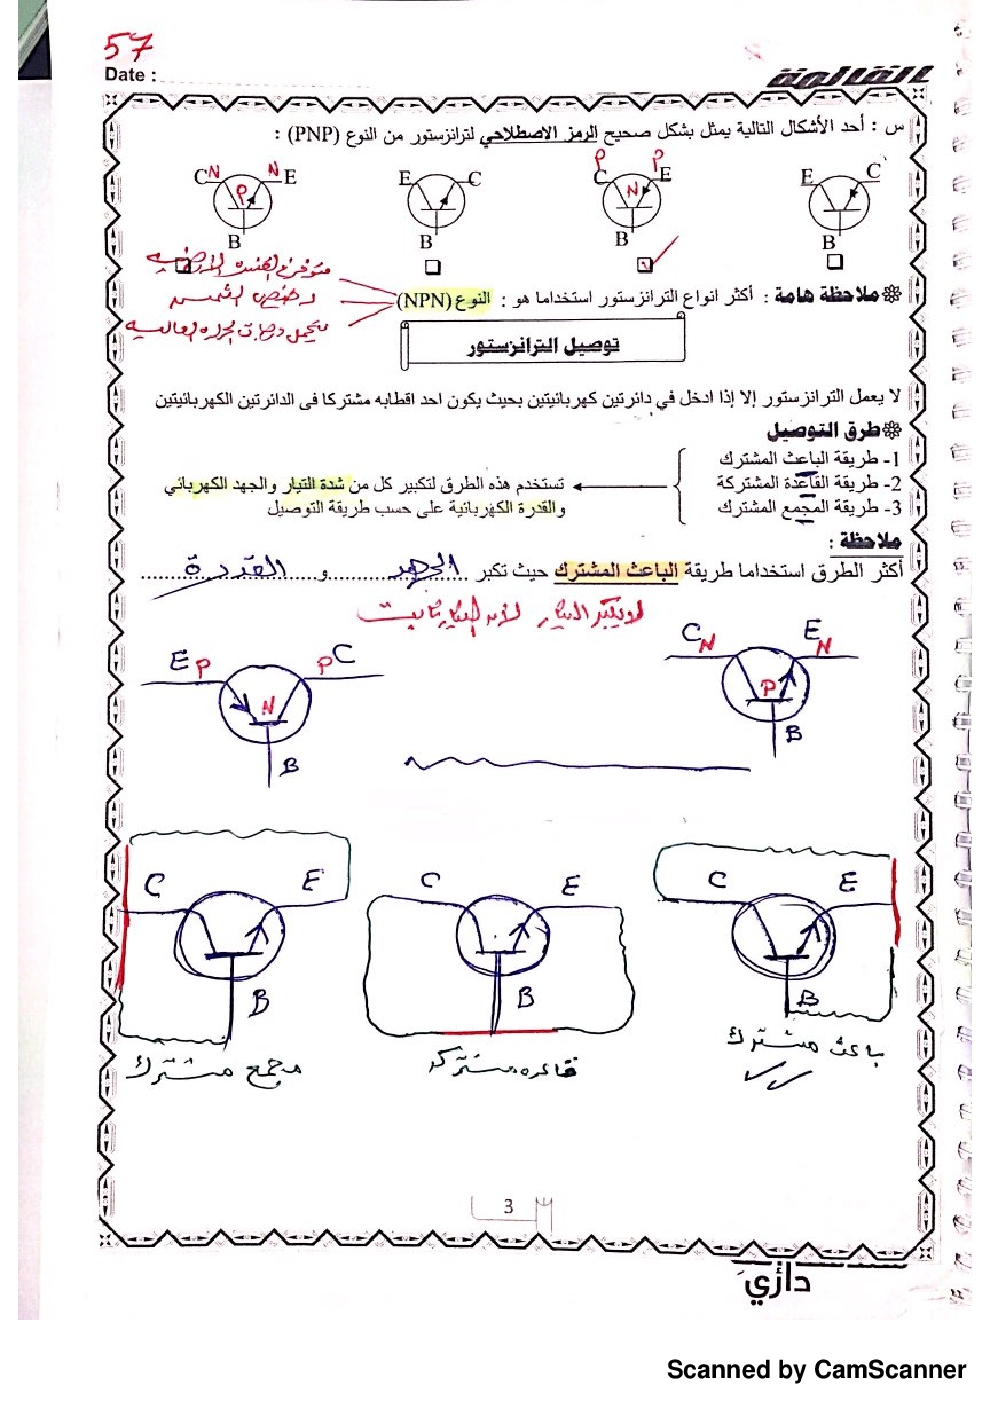 57
Date :
القائمة
س : أحد الأشكال التالية يمثل بشكل صحيح الرمز الاصطلاحي لترانزستور من النوع (PNP) :
E C B
P P
C E N B
E C B
N N
C E P B
❁ملاحظة هامة : أكثر انواع الترانزستور استخداما هو : النوع (NPN)
رخص الثمن
يتحمل درجات الحراره العاليه
توصيل الترانزستور
لا يعمل الترانزستور إلا إذا ادخل في دائرتين كهربائيتين بحيث يكون احد اقطابه مشتركا فى الدائرتين الكهربائيتين
❁طرق التوصيل
1- طريقة الباعث المشترك
2- طريقة القاعدة المشتركة
3- طريقة المجمع المشترك
تستخدم هذه الطرق لتكبير كل من شدة التيار والجهد الكهربائي
والقدرة الكهربائية على حسب طريقة التوصيل
ملاحظة :
أكثر الطرق استخداما طريقة الباعث المشترك حيث تكبر الجهد و القدرة
لا يكبر التيار لأن التيار ثابت
C N E N
P
B
E P P C
N
B
C E
B
باعث مشترك
C E
B
قاعده مشتركه
C E
B
مجمع مشترك
3
دائري
Scanned by CamScanner